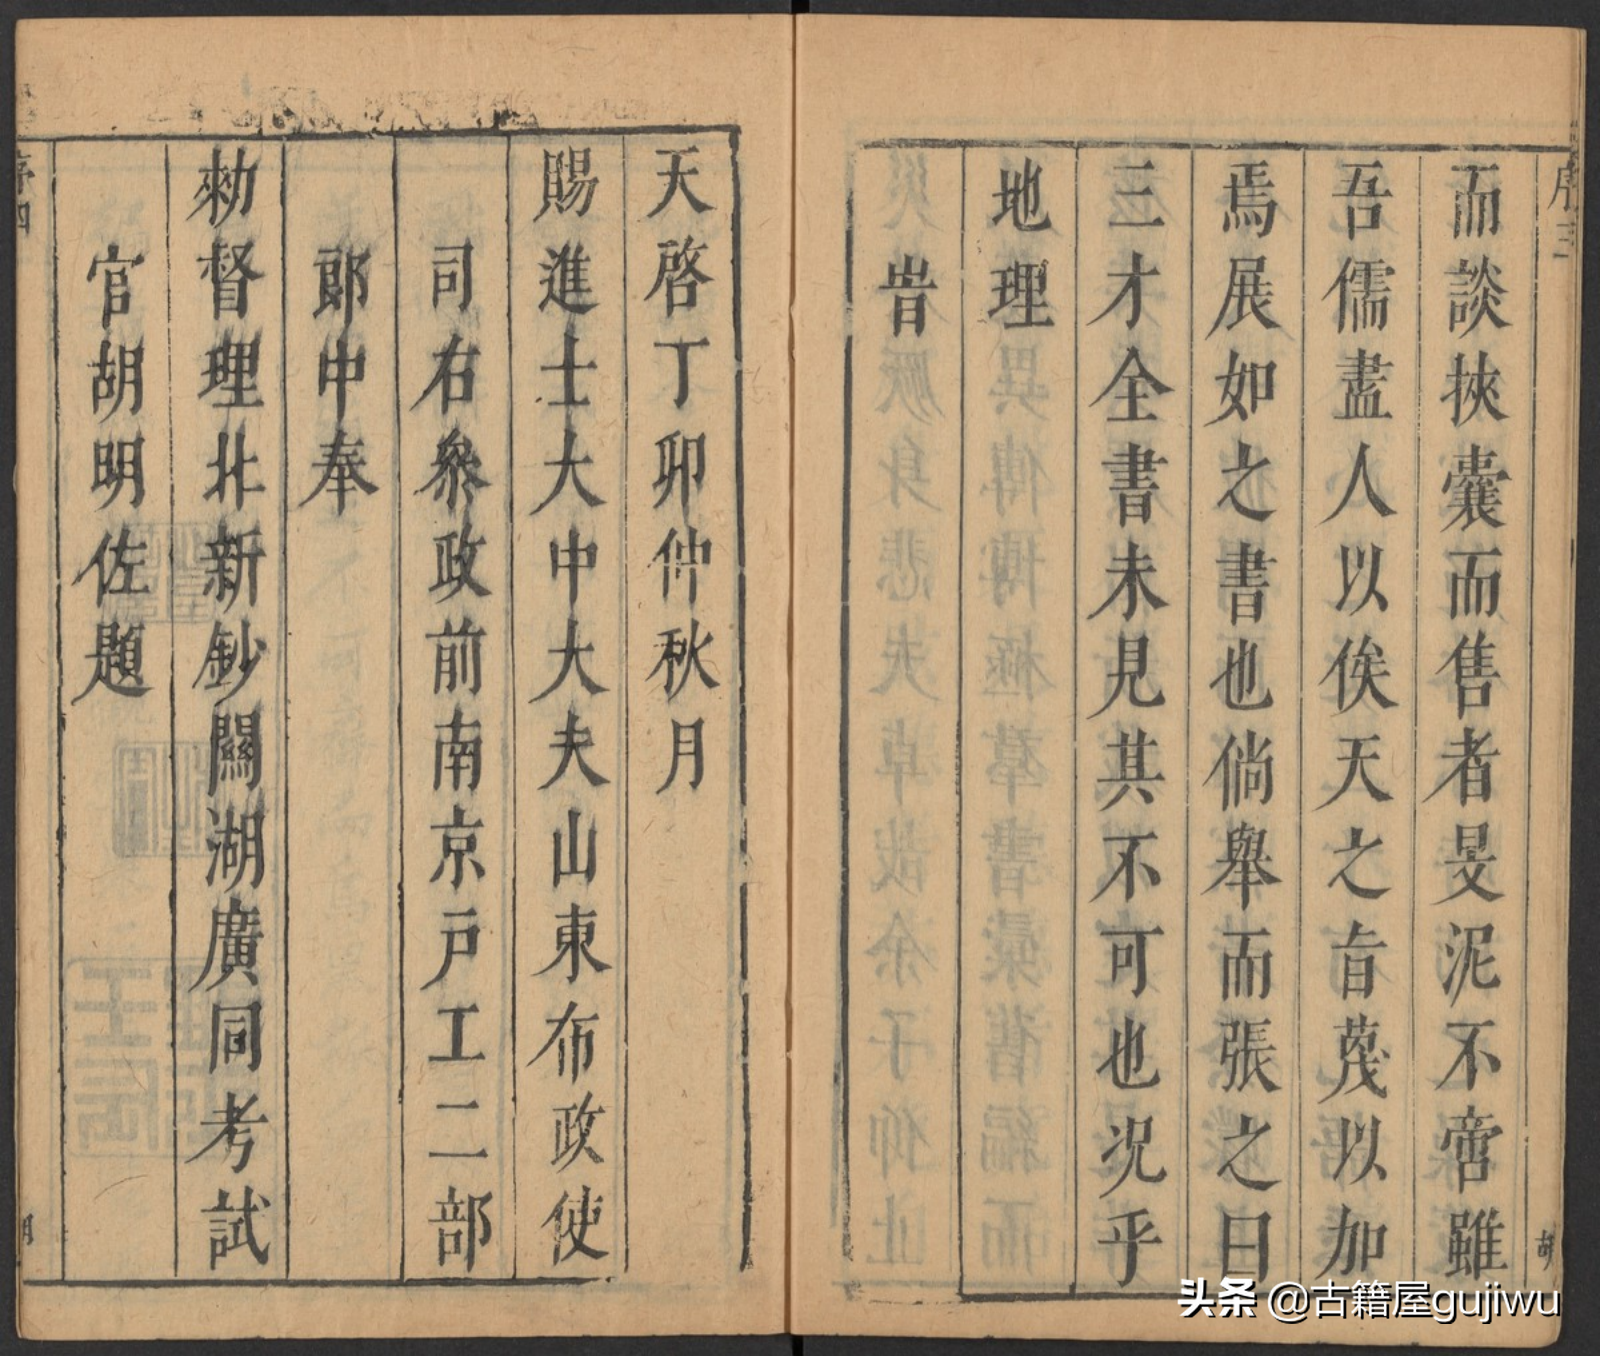 序三
而談挾囊而售者旻泥不啻雖
吾儒盡人以俟天之旨蔑以加
焉展如之書也倘舉而張之曰
三才全書未見其不可也况乎
地理
旹
胡
天啓丁卯仲秋月
賜進士大中大夫山東布政使
司右叅政前南京戶工二部
郎中奉
勑督理北新鈔關湖廣同考試
官胡明佐題
序四
头条 @古籍屋gujiwu